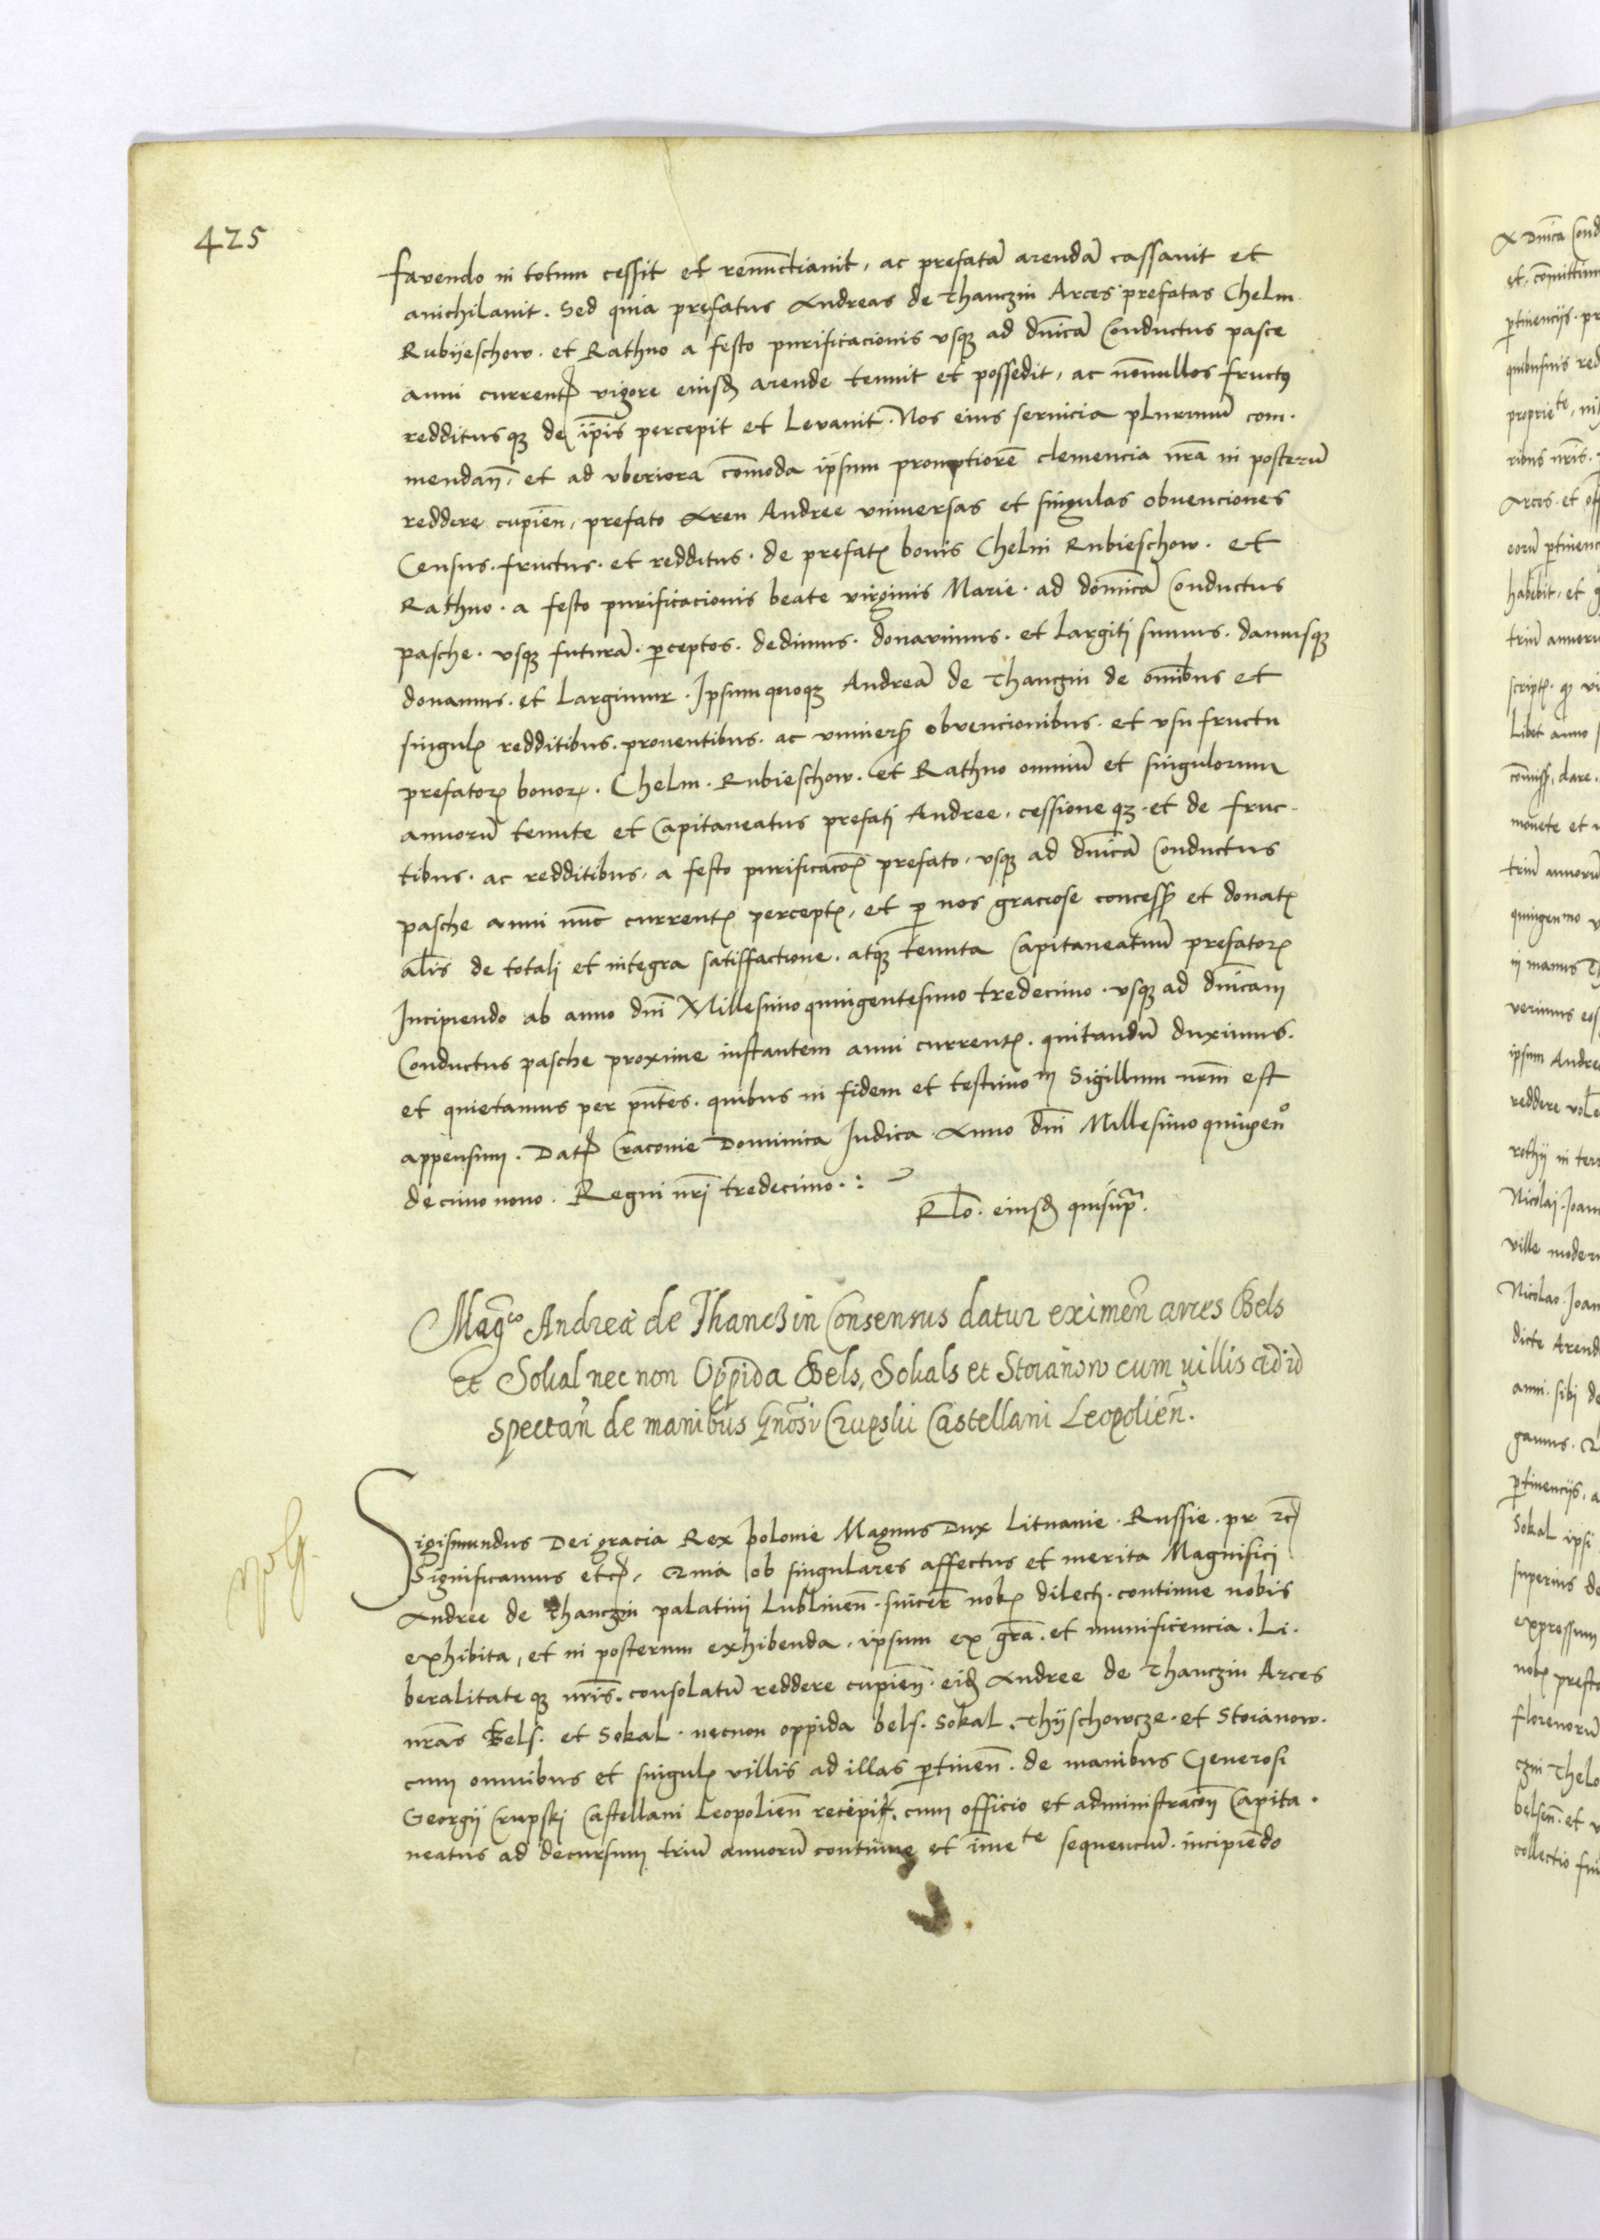 425
favendo in totum cessit et renunctiavit, ac prefatā arendā cassavit et
anichilavit. Sed quia prefatus Andreas de Thanczin Arces prefatas Chelm.
Rubyeschow. et Rathno a festo purificacionis usqȝ ad dn̄icā Conductus pasce
anni currentꝭ vigore eiusdꝭ arende tenuit et possedit, ac nōnullos fructꝰ
redditusqȝ de ip̄is percepit et Levavit. Nos eius servicia plurimū com.
mendan̄, et ad uberiora cōmoda ipsum promptiorē clemencia nr̄a in posterū
reddere cupien̄, prefato Andree universas et singulas obvenciones
Census. fructus. et redditus. de prefatꝭ bonis Chelm Rubieschow. et
Rathno. a festo purificacionis beate virginis Marie. ad domīcā Conductus
pasche. usqȝ futurā. ꝑceptos. dedimus. donavimus. et Largiti sumus. damusqȝ
donamus. et Largimur. Ipsum quoqȝ Andreā de Thanczin de om̄ibus et
singulꝭ redditibus. proventibus. ac universꝭ obvencionibus. et usufructu
prefatorꝭ bonorꝭ. Chelm. Rubieschow. et Rathno omniū et singulorum
annorū tenute et Capitaneatus prefati Andree. cessioneqȝ. et de fruc.
tibus. ac redditibus, a festo purificacōꝭ prefato, usqȝ ad dn̄icā Conductus
pasche anni nūc currentꝭ perceptꝭ, et ꝑ nos graciose concessꝭ et donatꝭ
al̄is de totali et integra satisfactione. atqȝ tenuta Capitaneatuū prefatorꝭ
Incipiendo ab anno dn̄i Millesimo quingentesimo tredecimo. usqȝ ad dn̄icam
Conductus pasche proxime instantem anni currentꝭ. quitandū duximus.
et quietamus per pn̄tes. quibus in fidem et testimoᵐ Sigillum nr̄m est
appensum. Datꝭ Cracovie Dominica Iudica. Anno dn̄i Millesimo quingenᵒ
decimo nono. Regni nr̄i tredecimo. :
Rl̄o. eiusdꝭ qui sup̄.
Mag̃ᶜᵒ Andreæ de Thanczin Consensus datur eximen̄ arces Bels
et Sokal nec non Oppida Bels, Sokals et Stoianow cum villis ad id
spectan̄ de manibus Gnōsi Crupski Castellani Leopolien̄.
Sigismundus Dei gracia Rex polonie Magnus Dux Lituanie. Russie. pr̄ ꝛcꝭ
Significamus etcꝭ, Quia ob singulares affectus et merita Magnifici
Andree de Thanczin palatini Lublinen̄. sincer̄ nobꝭ dilecti. continue nobis
exhibita, et in posterum exhibenda. ipsum ex gr̄a. et munificencia. Li.
beralitateqȝ nr̄is. consolatū reddere cupien̄. eidꝭ Andree de Thanczin Arces
nr̄as Bels. et Sokal. necnon oppida bels. Sokal. Thyschowcze. et Stoianow.
cum omnibus et singulꝭ villis ad illas ꝑtinen̄. de manibus Generosi
Georgii Crupski Castellani Leopolien̄ recepi, cum officio et administracōn Capita.
neatus ad decursum triū annorū continue et im̄eᵗᵉ sequenciū. incipiēdo